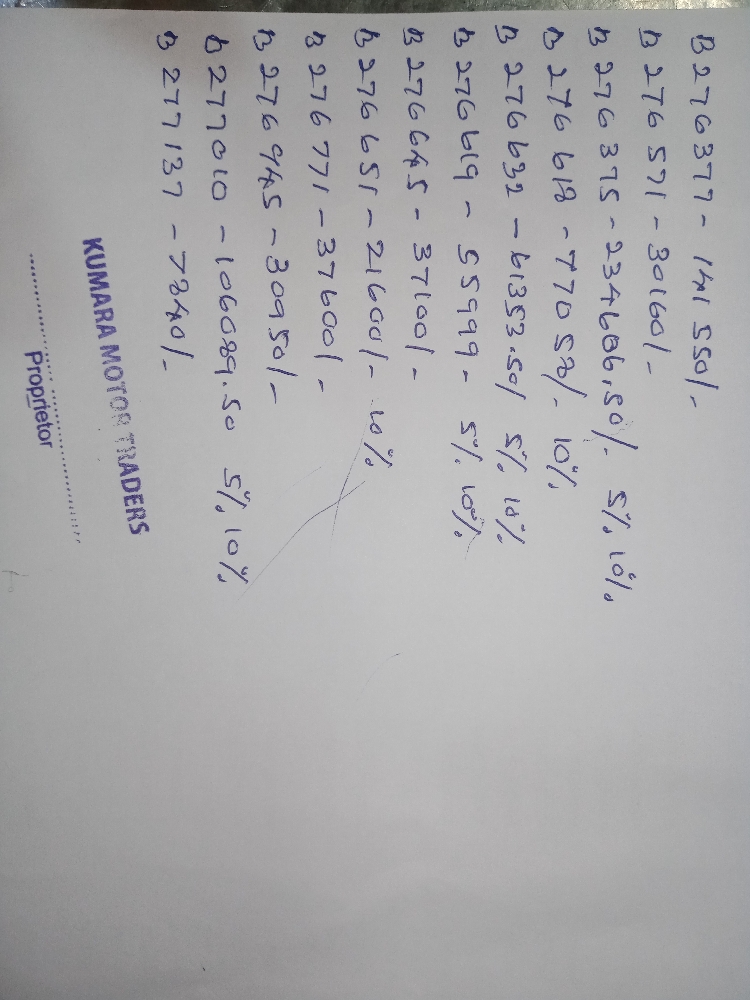 B 276377 - 141 550/-
B 276 571 - 30160/-
B 276 375 - 234606.50/- 5%, 10%
B 276 618 - 77052/- 10%
B 276632 - 61353.50/ 5%, 10%
B 276619 - 55999 - 5%, 10%
B 276645 - 37100/-
B 276651 - 21600/- 10%
B 276771 - 37600/-
B 276945 - 30950/-
B 277010 - 106089.50 5%, 10%
B 277137 - 7840/-
KUMARA MOTOR TRADERS
Proprietor